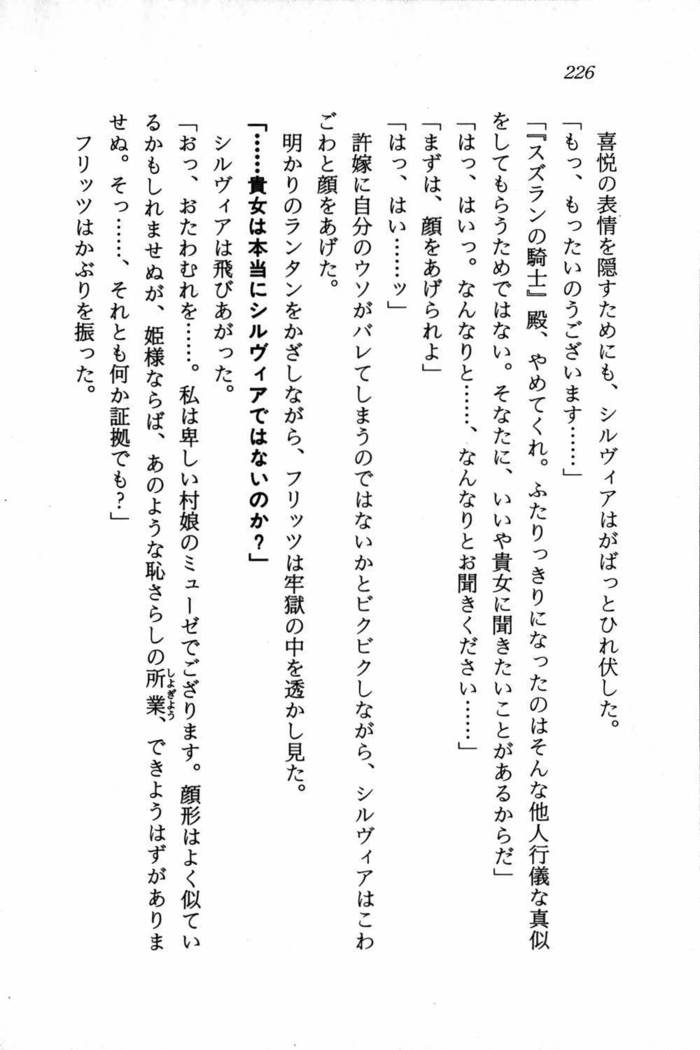 226
喜悦の表情を隠すためにも、シルヴィアはがばっとひれ伏した。
「もっ、もったいのうございます……」
「『スズランの騎士』殿、やめてくれ。ふたりっきりになったのはそんな他人行儀な真似
をしてもらうためではない。そなたに、いいや貴女に聞きたいことがあるからだ」
「はっ、はいっ。なんなりと……、なんなりとお聞きください……」
「まずは、顔をあげられよ」
「はっ、はい……ッ」
許嫁に自分のウソがバレてしまうのではないかとビクビクしながら、シルヴィアはこわ
ごわと顔をあげた。
明かりのランタンをかざしながら、フリッツは牢獄の中を透かし見た。
「……貴女は本当にシルヴィアではないのか？」
シルヴィアは飛びあがった。
「おっ、おたわむれを……。私は卑しい村娘のミューゼでござります。顔形はよく似てい
るかもしれませぬが、姫様ならば、あのような恥さらしの所業、できようはずがありま
しょぎょう
せぬ。そっ……、それとも何か証拠でも？」
フリッツはかぶりを振った。